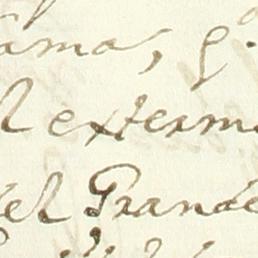 ama, q.
l exterm
el Grande